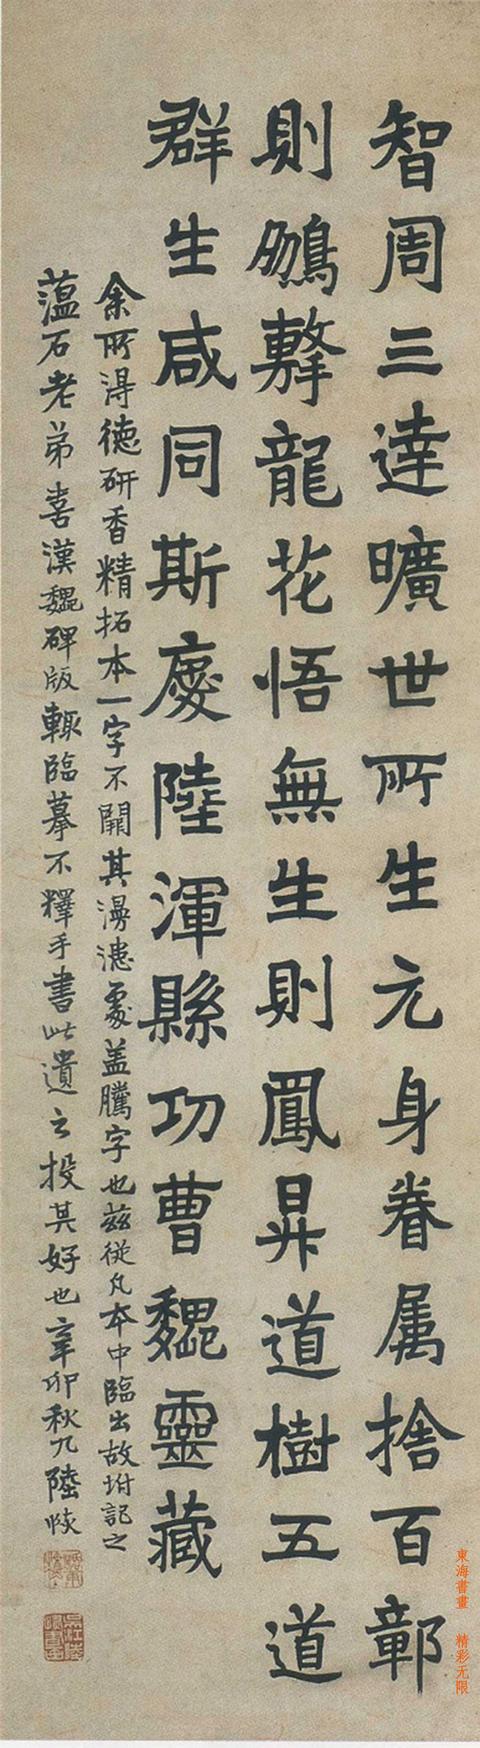 智周三達曠世所生元身眷属捨百鄣
則鵬擊龍花悟無生則鳳昇道樹五道
群生咸同斯慶陸渾縣功曹魏靈藏
余所淂徳研香精拓本一字不闕其漫漶處盖騰字也兹従凡本中臨出故坿記之
薀石老弟喜漢魏碑版輒臨摹不釋手書此遺之投其好也辛卯秋九陸恢
東海書畫 精彩无限